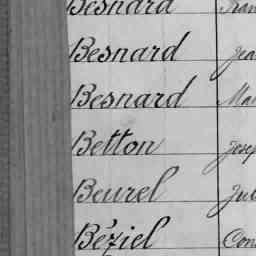 Besnard
Besnard Jea
Besnard Mar
Betton Josep
Beurel Jul
Béziel Con